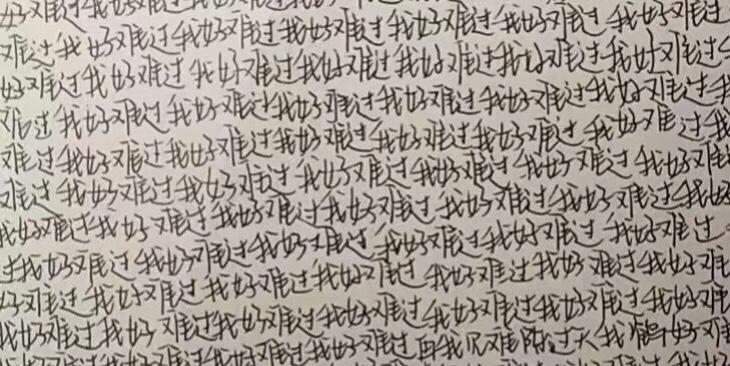 好难过我好难过我好难过我好难过我好难过我好难过
难过我好难过我好难过我好难过我好难过我好难过
好难过我好难过我好难过我好难过我好难过我好难过
难过我好难过我好难过我好难过我好难过我好难过我
难过我好难过我好难过我好难过我好难过我好难过我
难过我好难过我好难过我好难过我好难过我好难
我好难过我好难过我好难过我好难过我好难过我好
过我好难过我好难过我好难过我好难过我好难过
好难过我好难过我好难过我好难过我好难过我好难
我好难过我好难过我好难过我好难过我好难过我好难
好难过我好难过我好难过我好难过